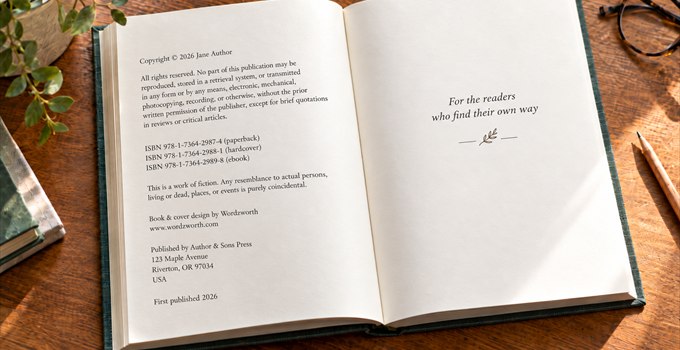 Copyright © 2026 Jane Author
All rights reserved. No part of this publication may be
reproduced, stored in a retrieval system, or transmitted
in any form or by any means, electronic, mechanical,
photocopying, recording, or otherwise, without the prior
written permission of the publisher, except for brief quotations
in reviews or critical articles.
ISBN 978-1-7364-2987-4 (paperback)
ISBN 978-1-7364-2988-1 (hardcover)
ISBN 978-1-7364-2989-8 (ebook)
This is a work of fiction. Any resemblance to actual persons,
living or dead, places, or events is purely coincidental.
Book & cover design by Wordzworth
www.wordzworth.com
Published by Author & Sons Press
123 Maple Avenue
Riverton, OR 97034
USA
First published 2026
For the readers
who find their own way